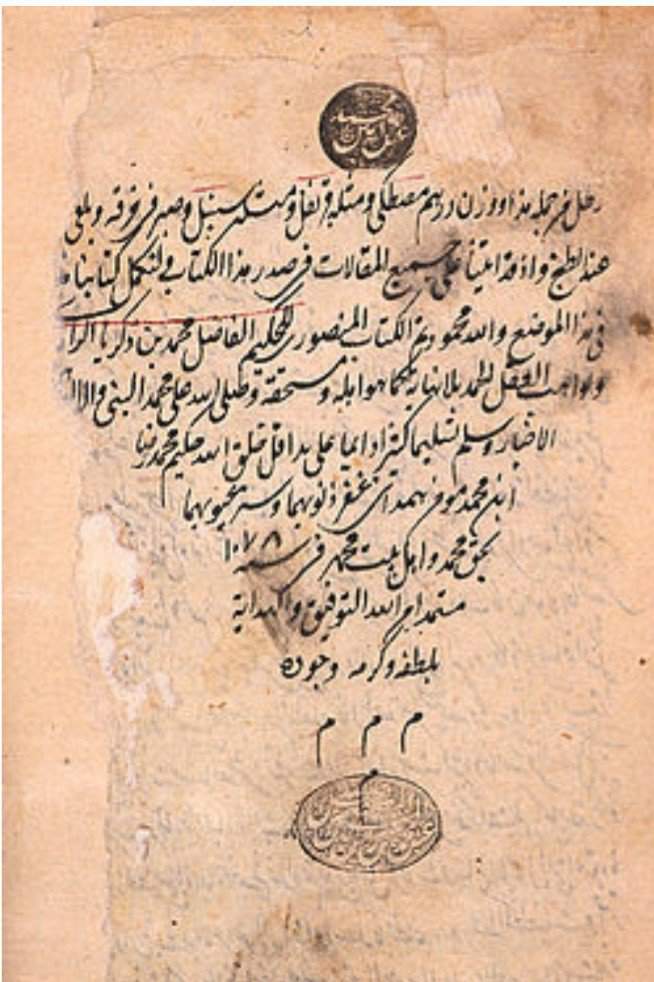 رطل خمر جمله هذا ووزن درهم مصطكى ومثله قرنفل ومثله سنبل وصبر فى خرقة
عند الطبخ واذ قد اتينا على جميع المقالات فى صدر هذا الكتاب فلنكمل كتابنا
فى هذا الموضع والله محمود تم الكتاب المنصورى للحكيم الفاضل محمد بن زكريا الرازى
ولواهب العقل الحمد بلا نهاية كما هو اهله ومستحقه وصلى الله على محمد النبى
الاخيار وسلم تسليما كثيرا دايما على يد اقل خلق الله حكيم محمد رضا
ابن محمد مومن همدانى غفر ذنوبهما وستر عيوبهما
بحق محمد واهل بيت محمد فى سنه ١٠٧٨
مستمدا من الله التوفيق والهداية
بلطفه وكرمه وجوده
م م م